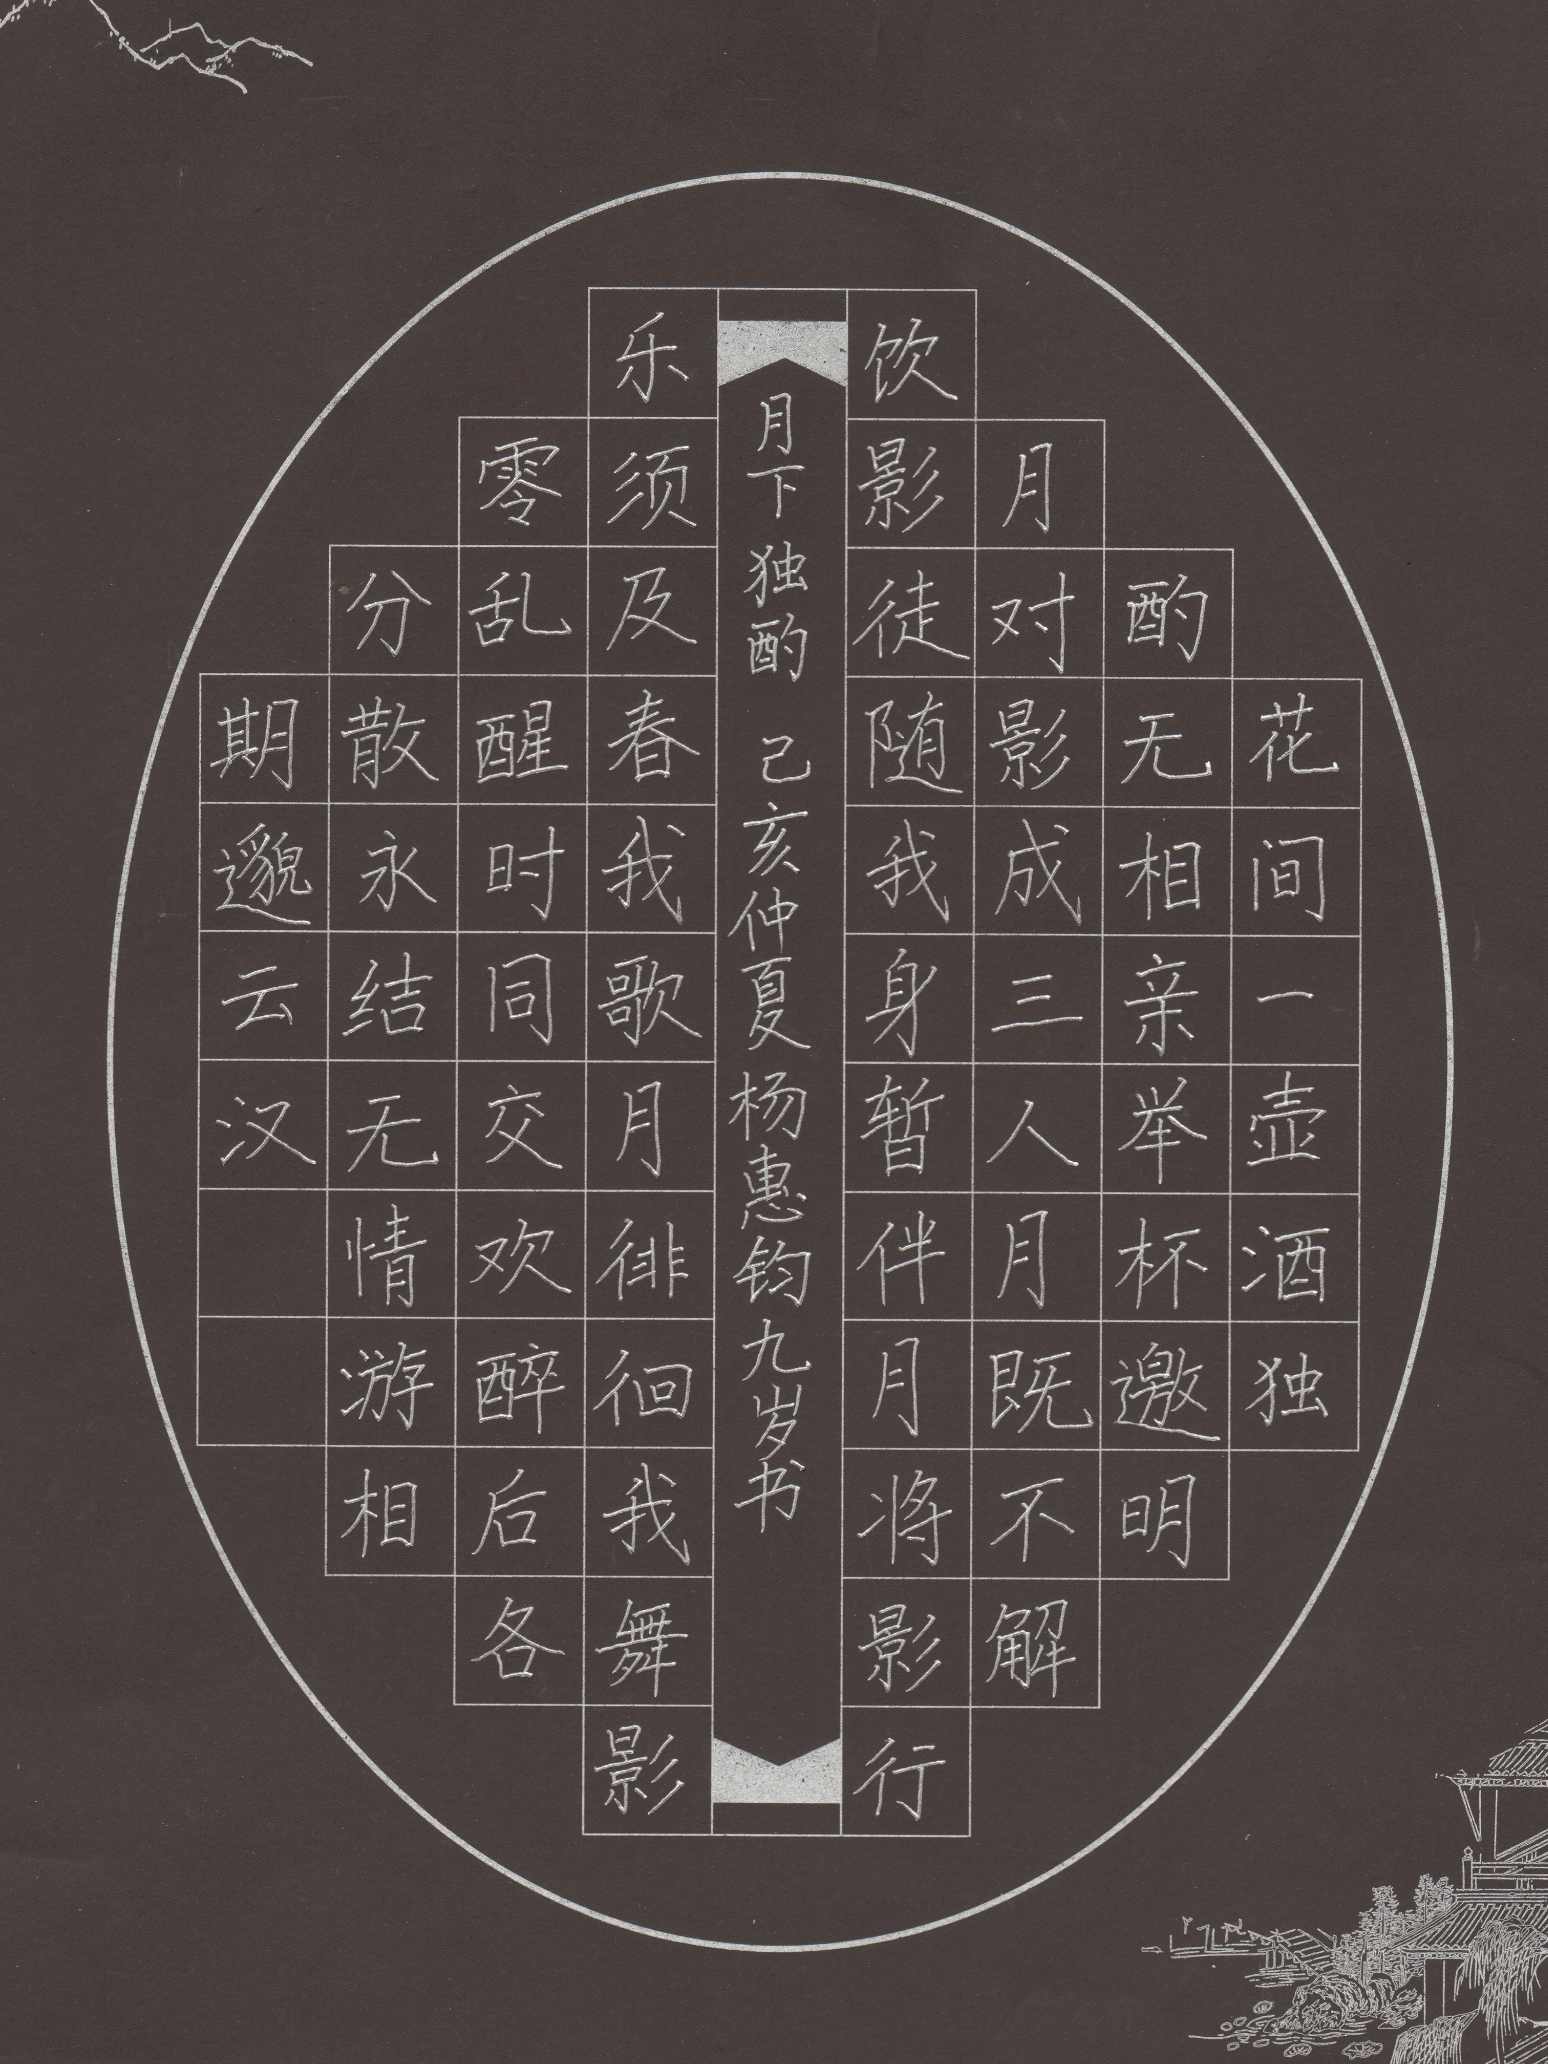 花间一壶酒独
酌无相亲举杯邀明
月对影成三人月既不解
饮影徒随我身暂伴月将影行
月下独酌 己亥仲夏杨惠钧九岁书
乐须及春我歌月徘徊我舞影
零乱醒时同交欢醉后各
分散永结无情游相
期邈云汉